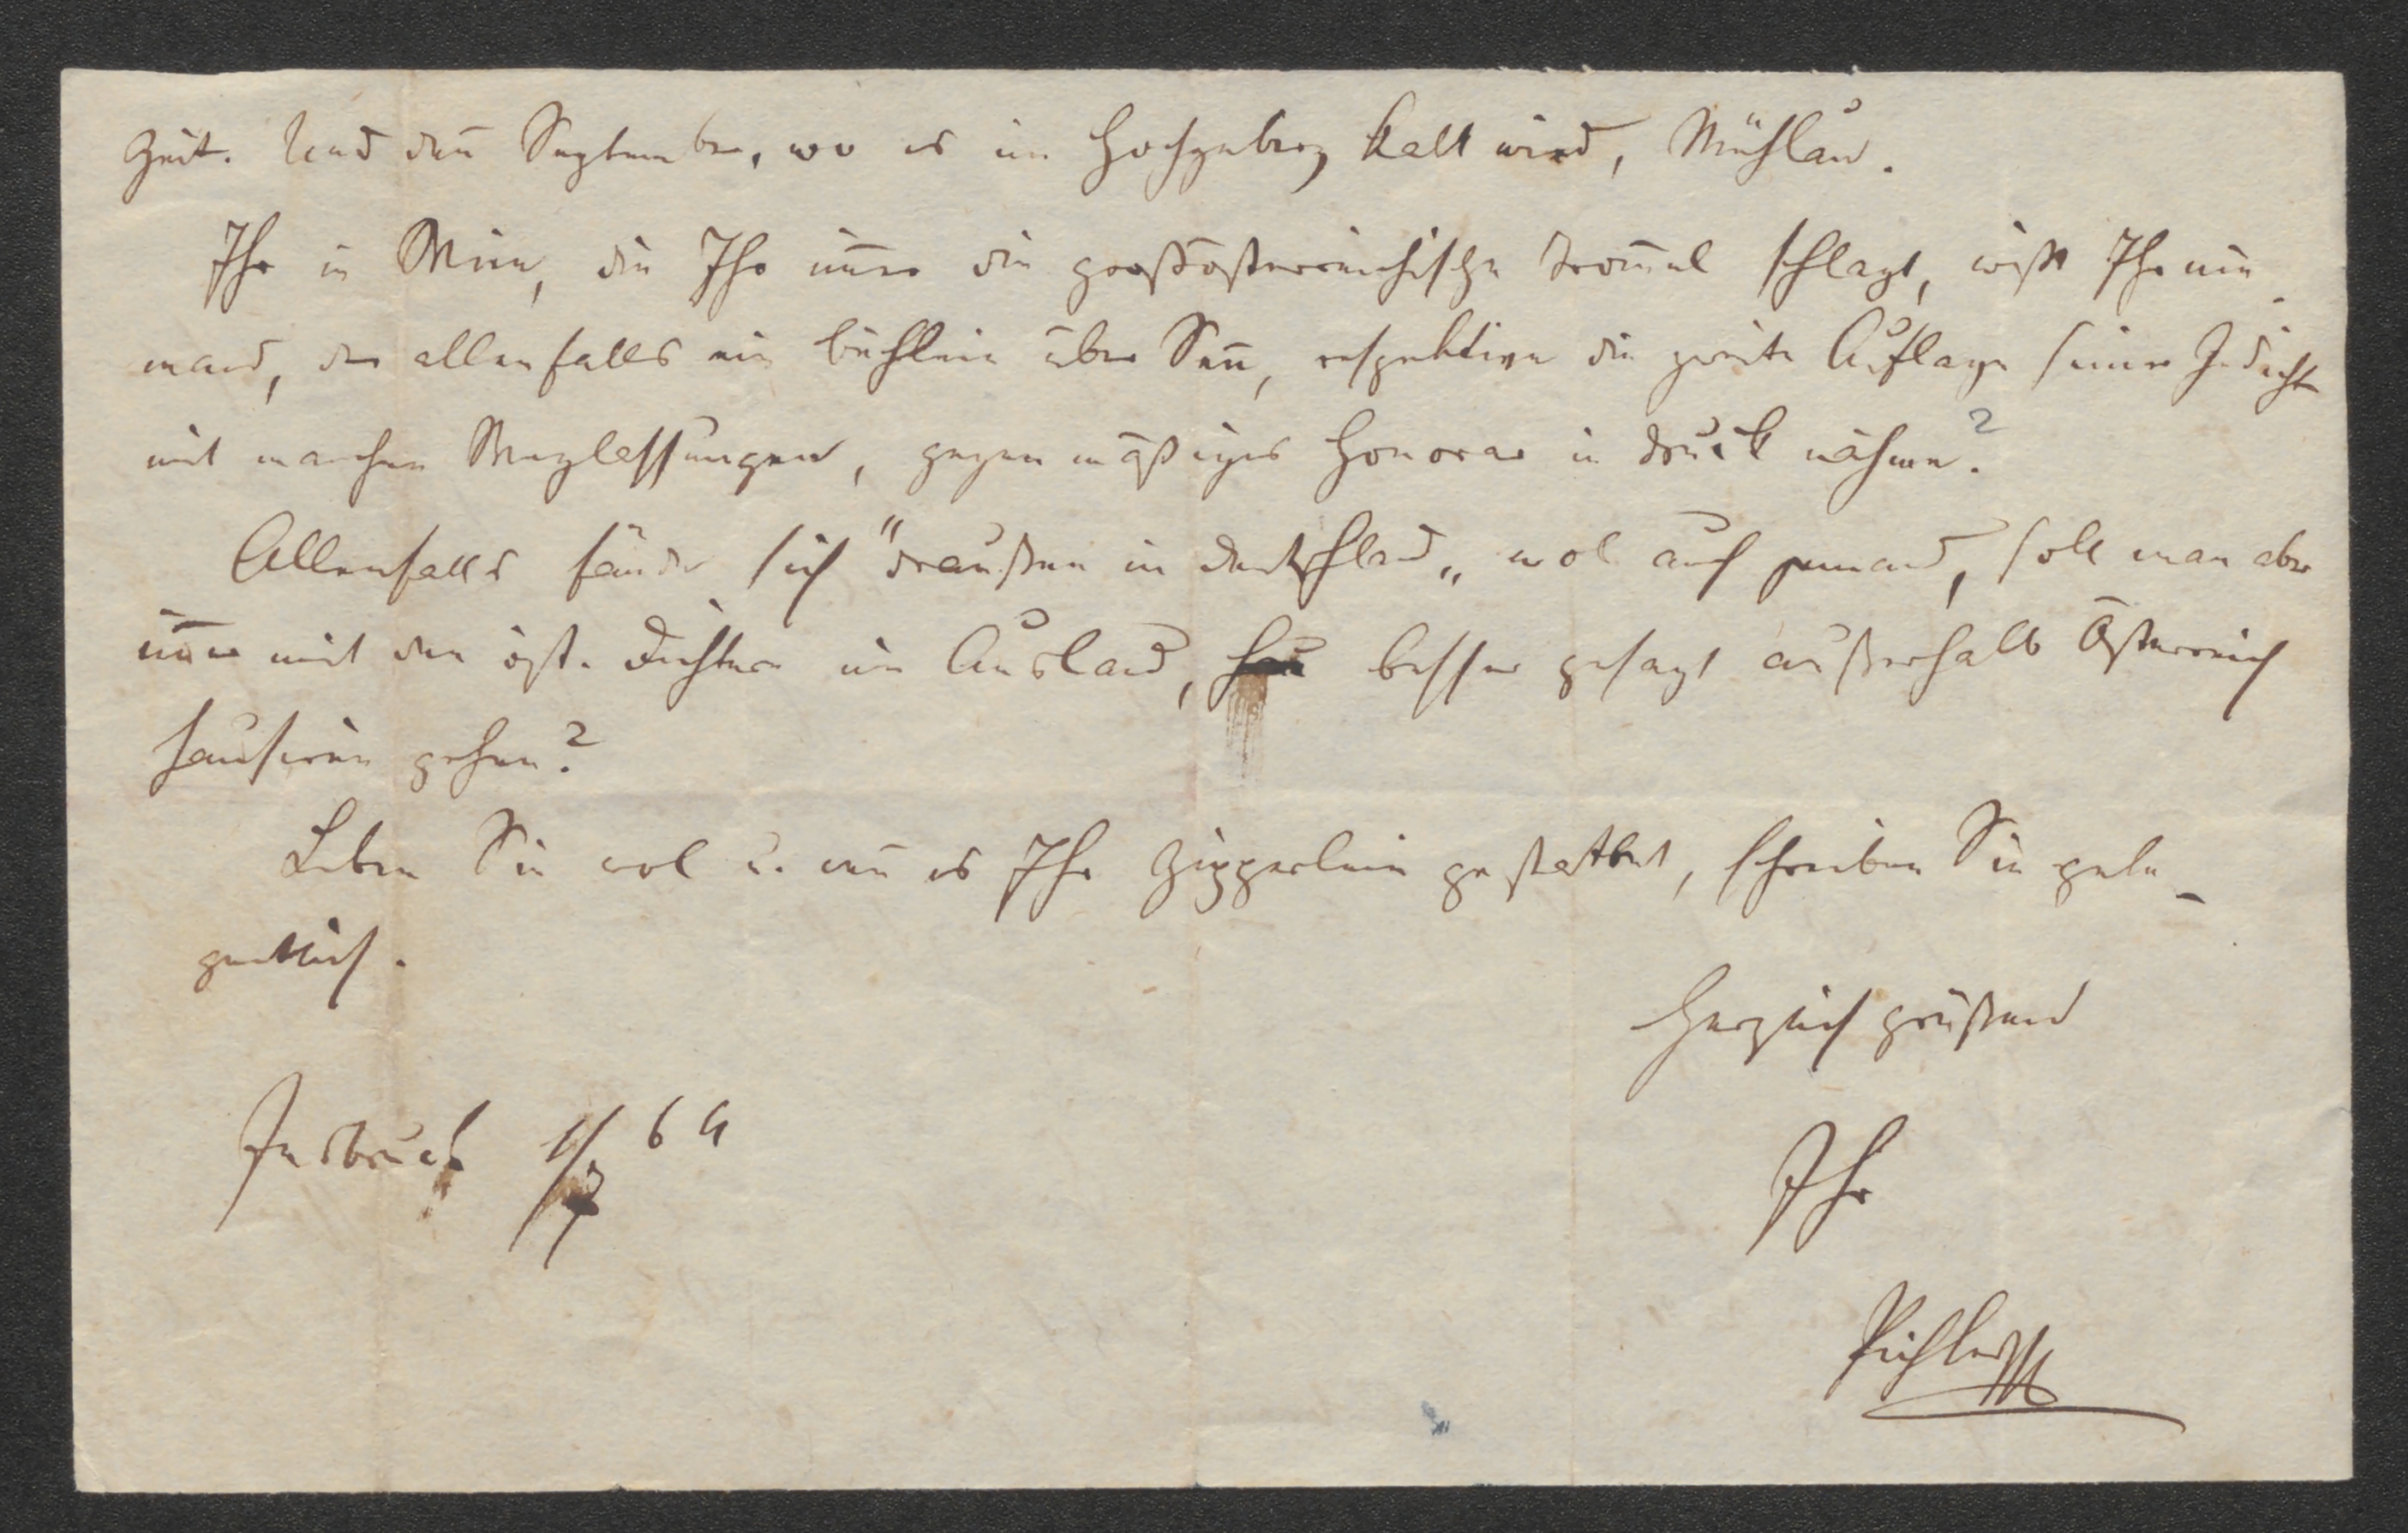 Zeit. Und den̄ September, wo es im Hochgebirg kalt wird, Mühlau.
Ihr in Wien, die Ihr im̄er die großösterreichische Trom̄el schlagt, wißt Ihr nie¬
mand, der allenfalls ein büchlein über Sen̄, respektive die zweite Auflage seiner Gedichte
mit manchen Weglassungen, gegen mäßiges Honorar in druck nähme?
Allenfalls fände sich "draußen in deutschland„ wol auch jemand, soll man aber
im̄er mit den öst. dichtern im Ausland, besser gesagt außerhalb Österreich
hausiren gehen?
Leben Sie wol u. wen̄ es Ihr Zipperlein gestattet, schreiben Sie gele-
gentlich.
Herzlich grüßend
Insbruck 1/7 64
Ihr
Pichler